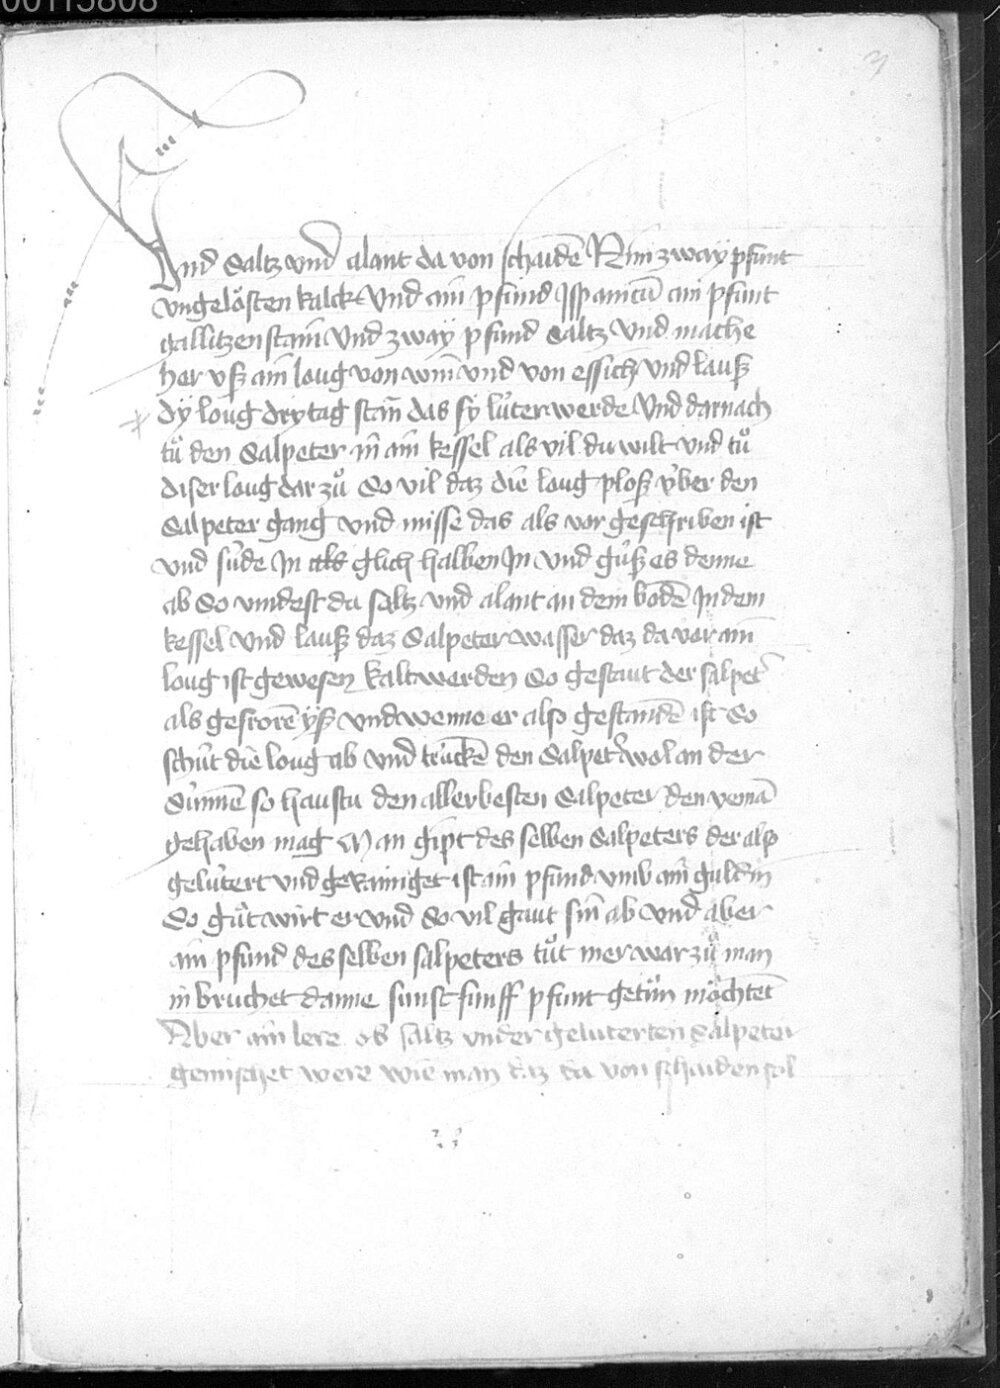 00115808
3
Und saltz und alant da von schaiden Nim zway pfunt
ungelösten kalck und ain pfund Ispanicū ain pfunt
gallitzenstain und zway pfund saltz und mache
her vß ain loug von win und von essich und lauß
dÿ loug dry tag stān das sy lúter werde Und darnach
tů den Salpeter in ain kessel als vil du wilt und tů
diser loug dar zů So vil daz die loug ploß úber den
Salpeter gang und misse das als vor geschriben ist
und súde In glich halben In und gúß es denne
ab So vindest du saltz und alant an dem bodē In dem
kessel und lauß daz Salpeter wasser daz da vor ain
loug ist gewesen kalt werden So gestaut der salpet̄
als gefrorē ÿß und wenne er also gestandē ist So
schút die loug ab und trúckē den Salpet̄ wol an der
Sunnē so haustu den aller besten Salpeter den yemā
gehaben mag Man gipt des selben Salpeters der also
gelútert und gerainiget ist ain pfund umb ain guldin
So gůt wirt er und So vil gaut sin ab und aber
ain pfund des selben salpeters tůt mer war zů man
in bruchet danne sunst funff pfunt getůn möchtēt
Aber ain lere ob saltz under gelúterten Salpeter
gemischet were wie man daz da von schaiden sol